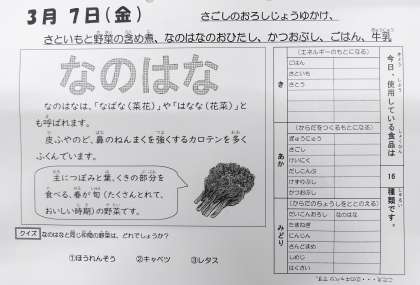 ３月　７日（金）
さごしのおろしじょうゆかけ、
さといもと野菜の含め煮、なのはなのおひたし、かつおぶし、ごはん、牛乳
なのはな
なのはなは、「なばな（菜花）」や「はなな（花菜）」と
も呼ばれます。
皮ふやのど、鼻のねんまくを強くするカロテンを多く
ふくんでいます。
主につぼみと葉、くきの部分を
食べる、春が旬（たくさんとれて、
おいしい時期）の野菜です。
クイズ
なのはなと同じ仲間の野菜は、どれでしょうか？
①ほうれんそう　②キャベツ　③レタス
今日、使用している食品は
16
種類です。
き
（エネルギーのもとになる）
ごはん
さといも
さとう
あか
（からだをつくるもとになる）
ぎゅうにゅう
さごし
けいにく
だしこんぶ
けずりぶし
かつおぶし
みどり
（からだのちょうしをととのえる）
だいこんおろし　なのはな
たまねぎ
にんじん
さんどまめ
しめじ
はくさい